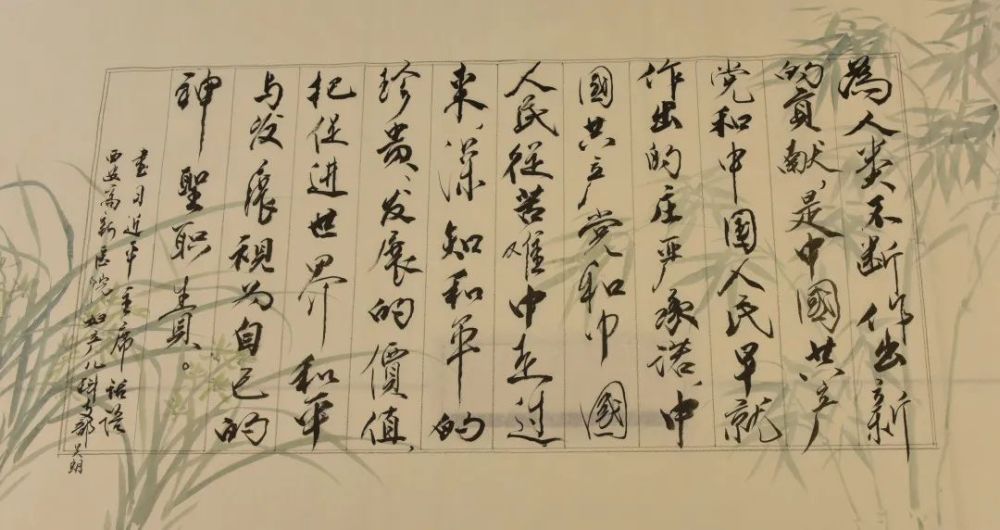 為人类不断作出新
的貢献,是中國共产
党和中國人民早就
作出的庄严承诺、中
國共产党和中國
人民従苦难中走过
来,深知和平的
珍贵、发展的價值、
把促进世界和平
与发展視为自己的
神聖职责。
書习近平主席话语
西安高新医院妇产儿科支部